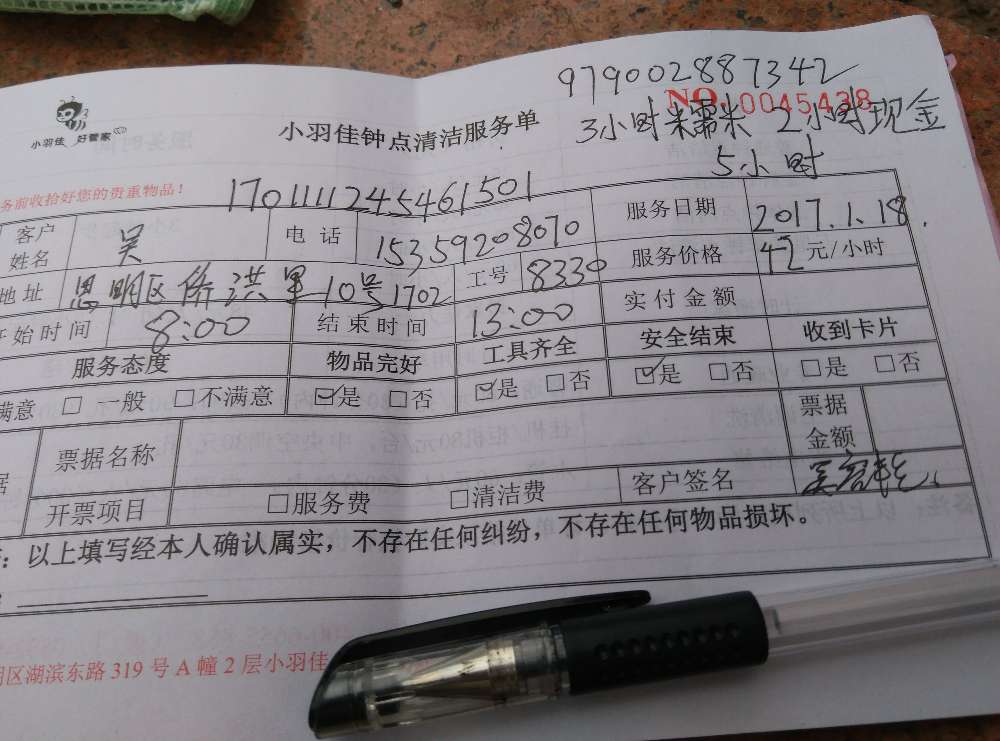 979002887342
NO. 0045438
小羽佳 好管家
小羽佳钟点清洁服务单
3小时 2小时现金
5小时
务前收拾好您的贵重物品!
1701111245461501
客户姓名 吴 电话 15359208070 服务日期 2017.1.18.
地址 思明区侨洪里10号1702 工号 8330 服务价格 42元/小时
开始时间 8:00 结束时间 13:00 实付金额
服务态度 物品完好 工具齐全 安全结束 收到卡片
满意 □ 一般 □不满意 ☑是 □否 ☑是 □否 ☑是 □否 □是 □否
据 票据名称 票据金额
开票项目 □服务费 □清洁费 客户签名 吴
：以上填写经本人确认属实，不存在任何纠纷，不存在任何物品损坏。
明区湖滨东路 319 号 A 幢 2 层小羽佳